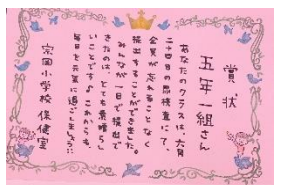 賞状
五年一組さん
あなたのクラスは、六月
二十四日の品検査にて、
全員が忘れることなく
提出することができました。
みんなが一日で提出で
きたのは、とても素晴らし
いことです♪これからも、
毎日を元気に過ごしましょう
小学校保健室